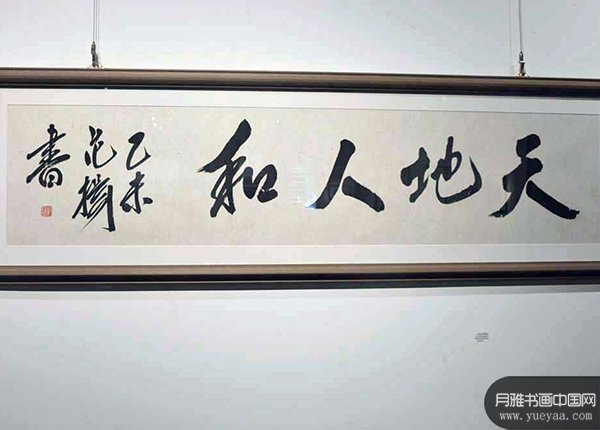 天地人和
乙未
范揚
書
月雅书画中国网
www.yueyaa.com